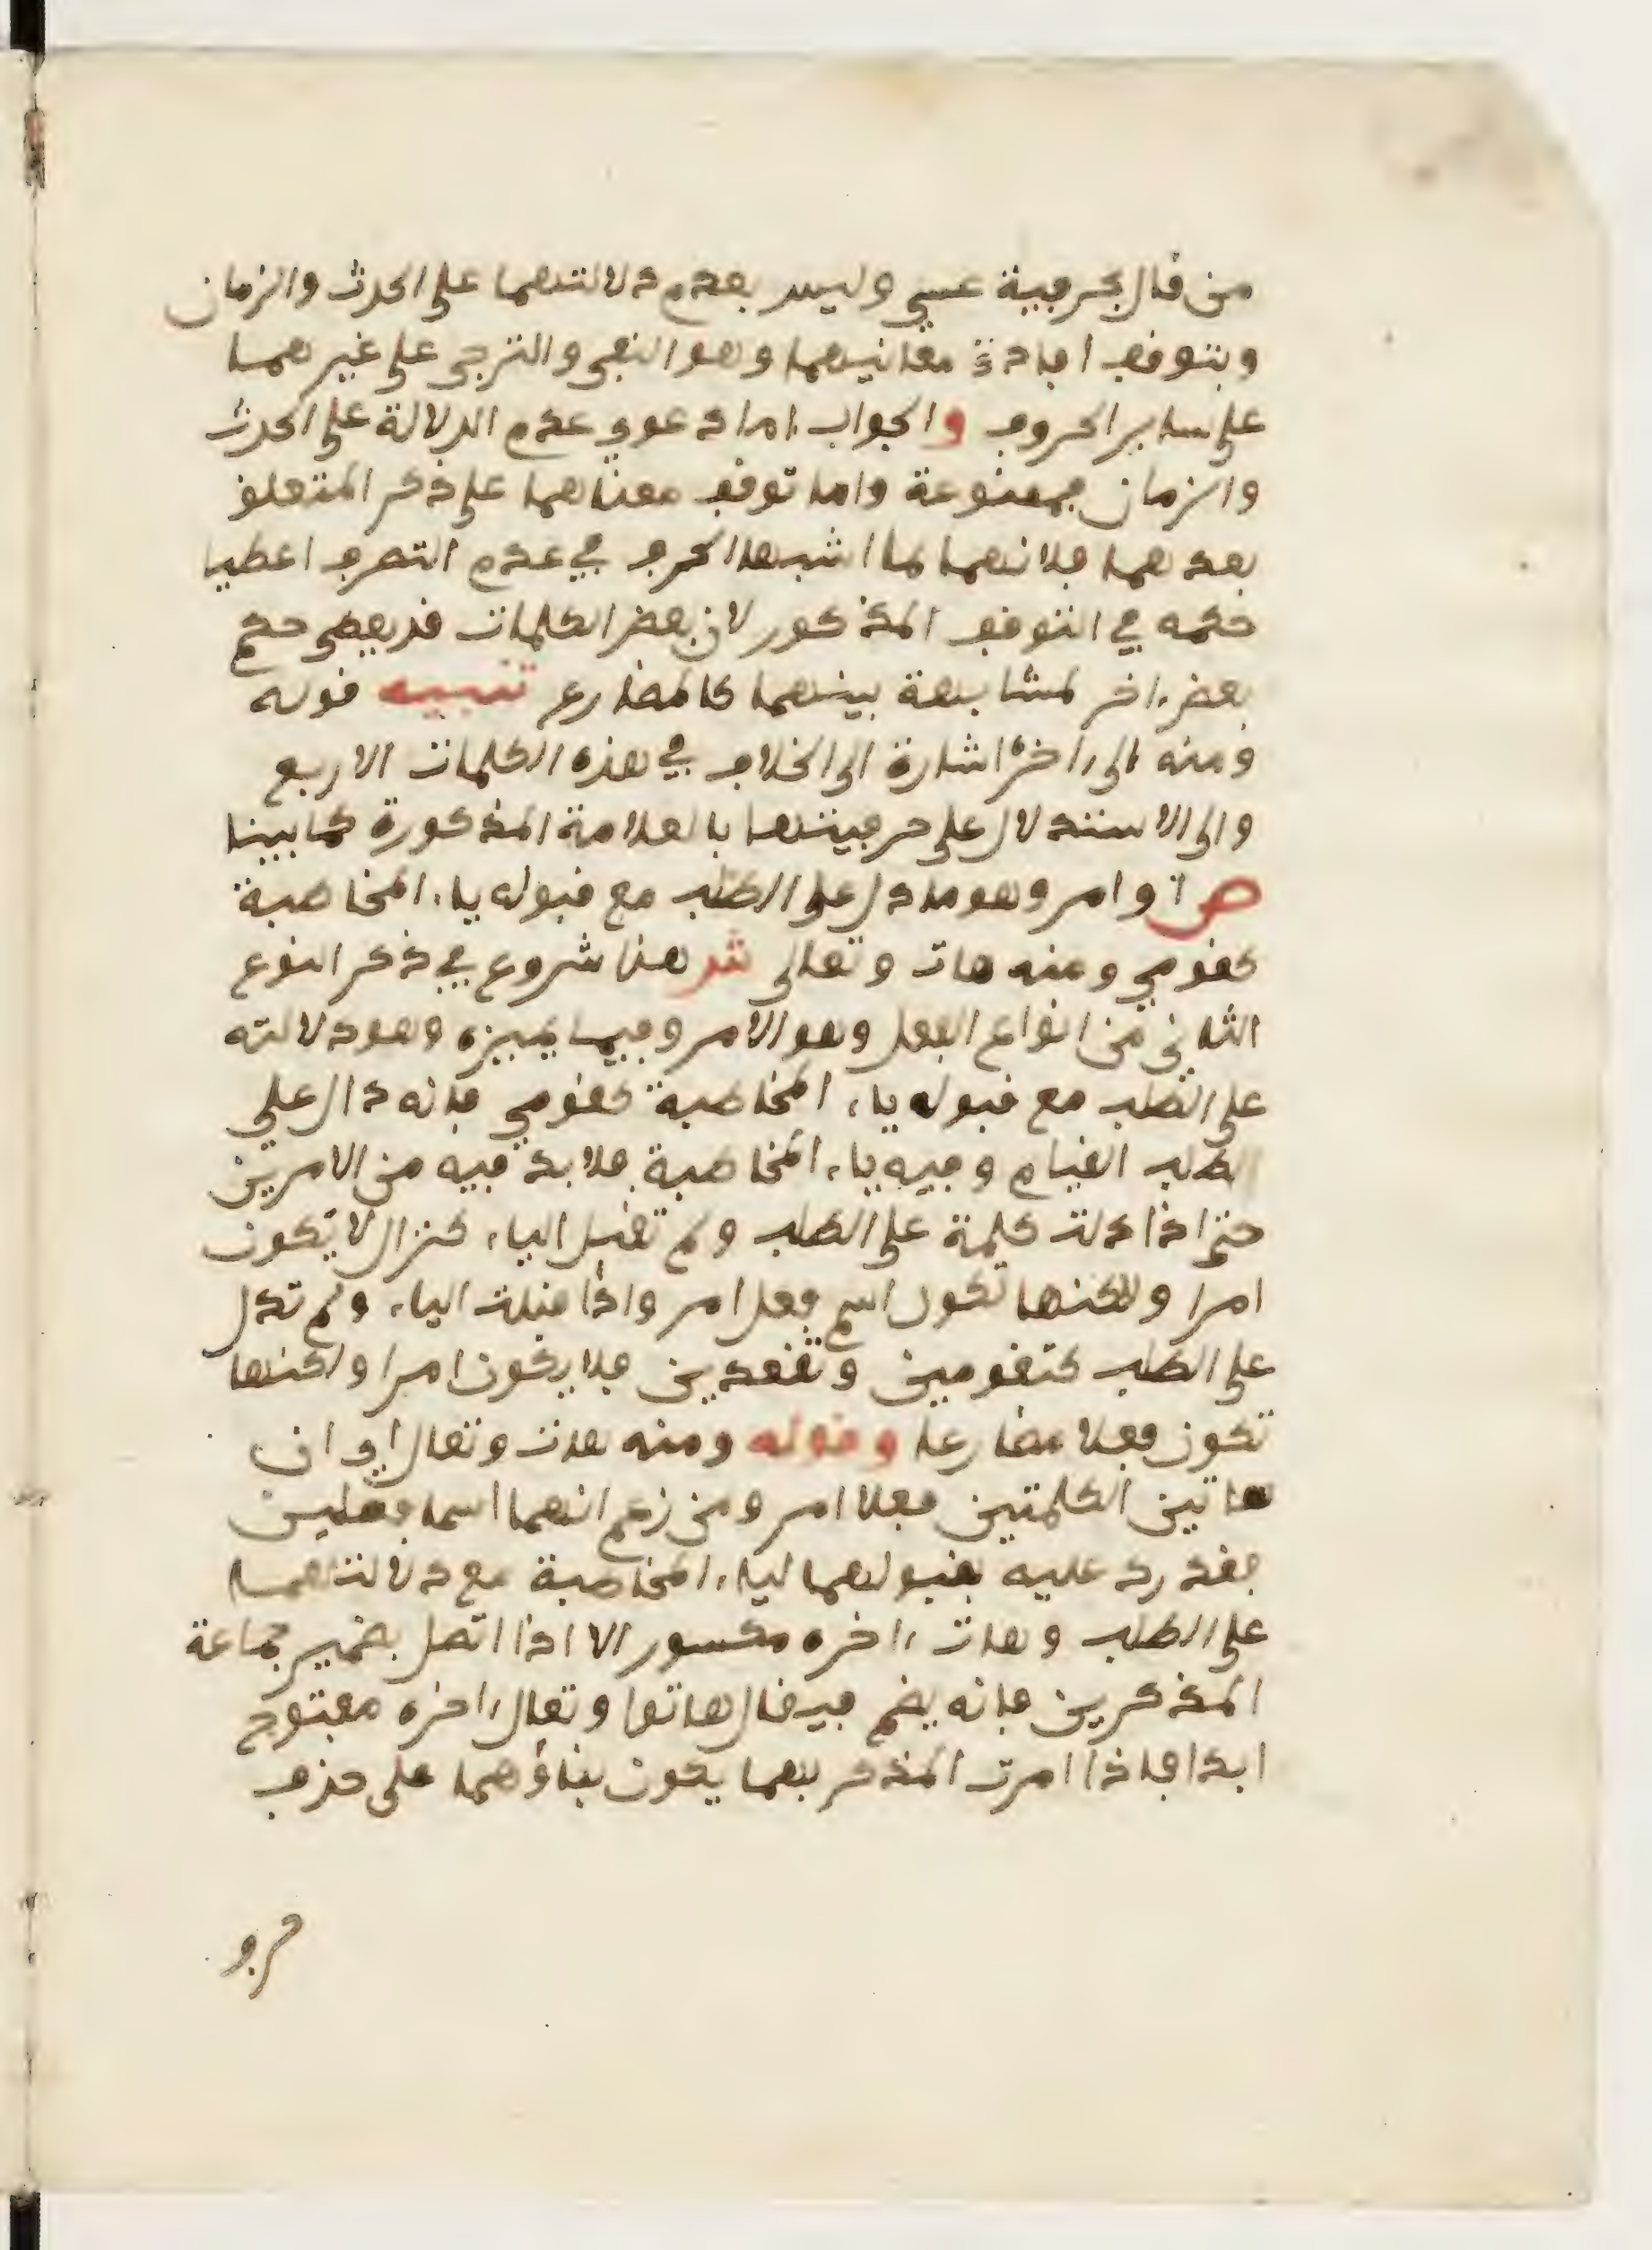 من قال بحرفية عسى وليس بعدم دلالتهما على الحدث والزمان
وبتوقف افادة معانيهما وهو النفي والترجي على غيرهما
على ساير الحروف والجواب اما دعوى عدم الدلالة على الحدث
والزمان فممنوعة واما توقف معناهما على ذكر المتعلق
بعدهما فلانهما لما اشبها الحرف في عدم التصرف اعطيا
حكمه في التوقف المذكور لان بعض الكلمات قد يعطى حكم
بعض اخر لمشابهة بينهما كالمضارع تنبيه قوله
ومنه الى اخره اشارة الى الخلاف في هذه الكلمات الاربع
والى الاستدلال على حرفيتها بالعلامة المذكورة كما بينا
ص وامر وهو ما دل على الطلب مع قبوله ياء المخاطبة
كقومي ومنه هات وتعالى ش هذا شروع في ذكر النوع
الثاني من انواع الفعل وهو الامر وفيما يميزه وهو دلالته
على الطلب مع قبوله ياء المخاطبة كقومي فانه دال على
الطلب القيام وفيه ياء المخاطبة فلا بد فيه من الامرين
حتى اذا دلت كلمة على الطلب ولم تقبل الياء كنزال لا تكون
امرا ولكنها تكون اسم فعل امر واذا قبلت الياء ولم تدل
على الطلب كتقومين وتقعدين فلا يكون امرا ولكنها
تكون فعلا مضارعا وقوله ومنه هات وتعال اي ان
هاتين الكلمتين فعلا امر ومن زعم انهما اسما فعلين
فقد رد عليه بقبولهما لياء المخاطبة مع دلالتهما
على الطلب وهات اخره مكسور الا اذا اتصل بضمير جماعة
المذكرين فانه يضم فيقال هاتوا وتعال اخره مفتوح
ابدا فاذا امرت المذكر بهما يكون بناؤهما على حذف
حرف